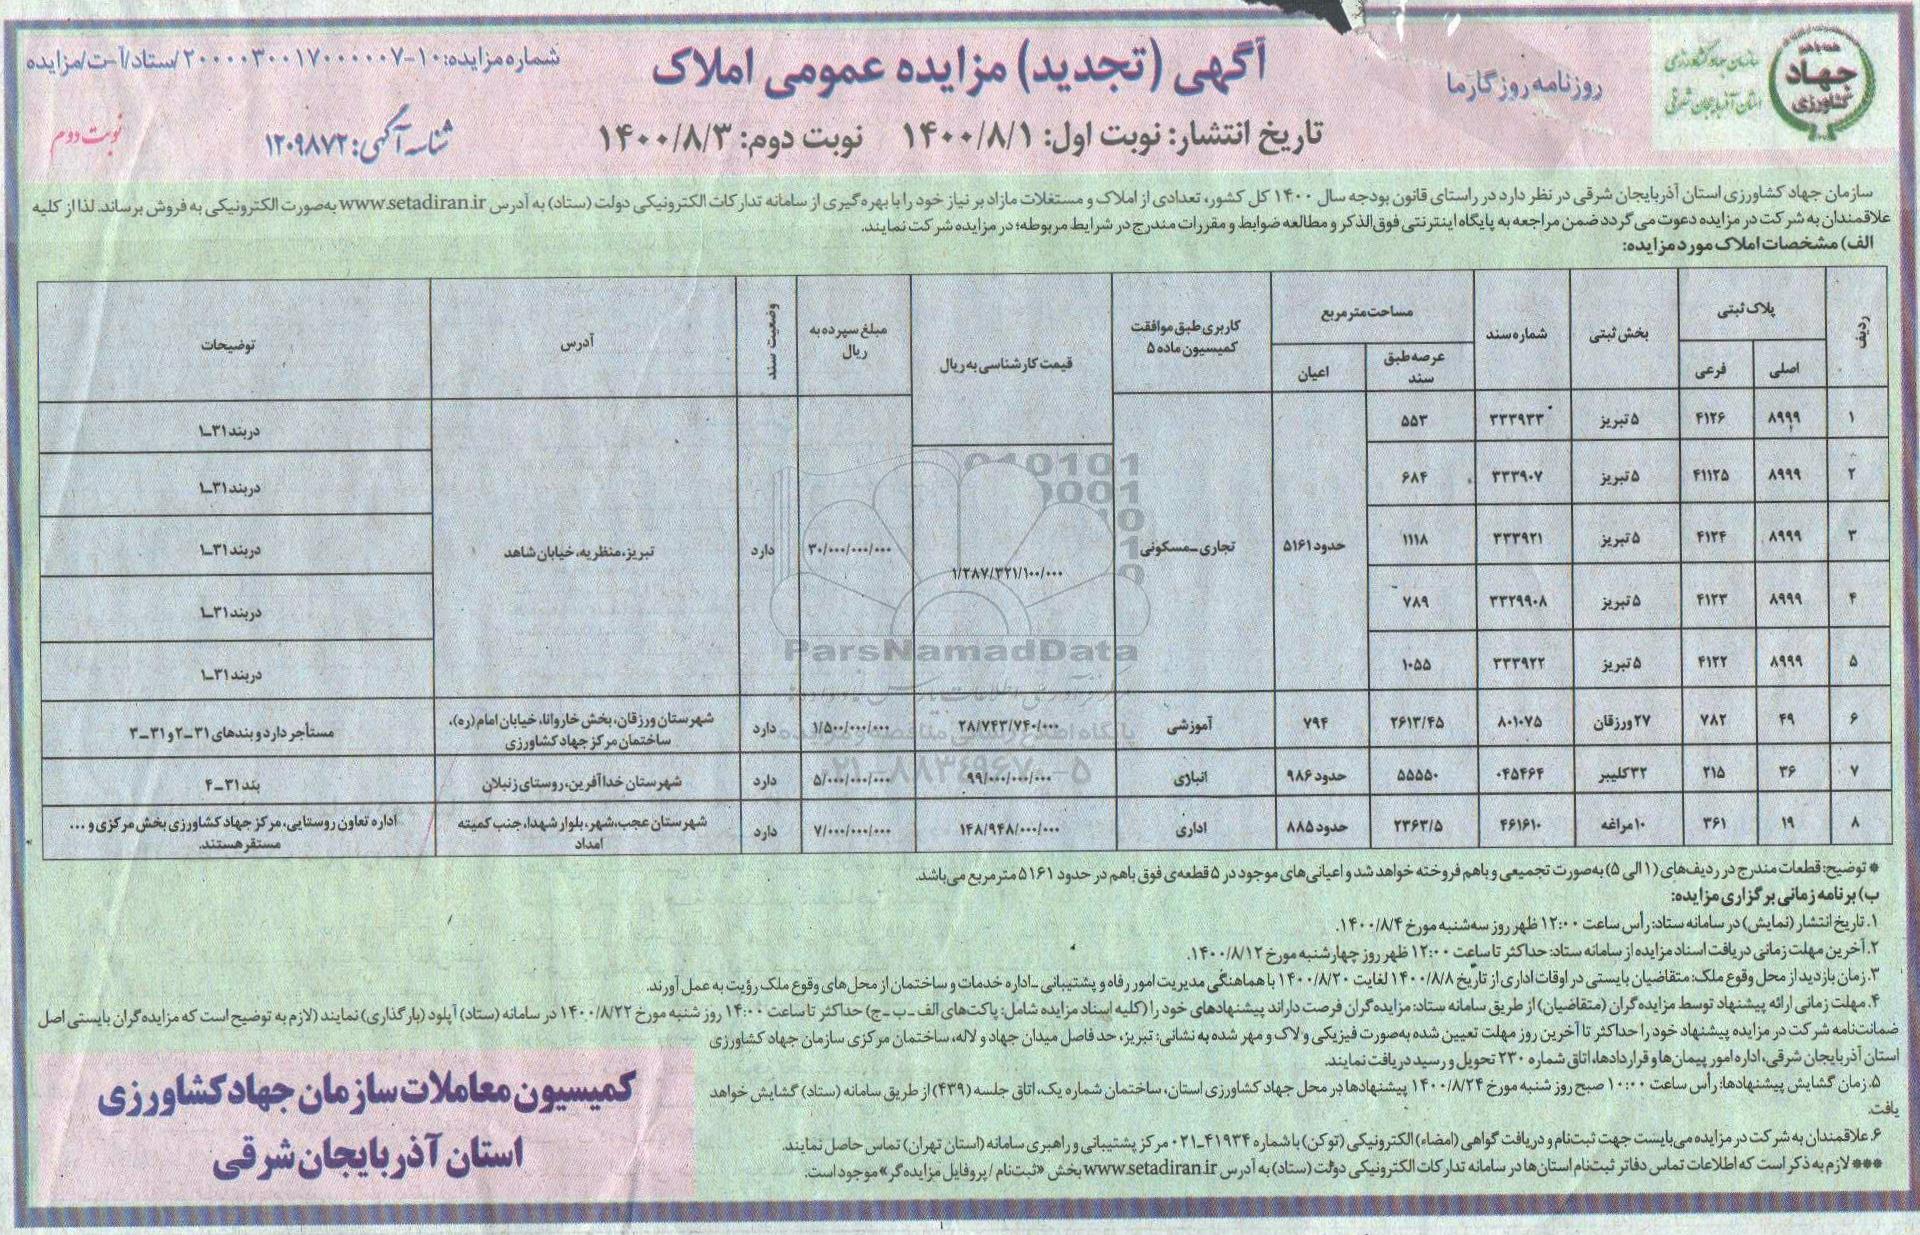 همه با هم
جهاد
کشاورزی
سازمان جهاد کشاورزی
استان آذربایجان شرقی
روزنامه روزگار ما
آگهی (تجدید) مزایده عمومی املاک
شماره مزایده: ۱۰-۲۰۰۰۰۳۰۰۱۷۰۰۰۰۰۷/ستاد/آ-ت/مزایده
تاریخ انتشار: نوبت اول: ۱۴۰۰/۸/۱ نوبت دوم: ۱۴۰۰/۸/۳
شناسه آگهی: ۱۲۰۹۸۷۲
نوبت دوم
سازمان جهاد کشاورزی استان آذربایجان شرقی در نظر دارد در راستای قانون بودجه سال ۱۴۰۰ کل کشور، تعدادی از املاک و مستغلات مازاد بر نیاز خود را با بهره‌گیری از سامانه تدارکات الکترونیکی دولت (ستاد) به آدرس www.setadiran.ir به‌صورت الکترونیکی به فروش برساند. لذا از کلیه
علاقمندان به شرکت در مزایده دعوت می‌گردد ضمن مراجعه به پایگاه اینترنتی فوق‌الذکر و مطالعه ضوابط و مقررات مندرج در شرایط مربوطه؛ در مزایده شرکت نمایند.
الف) مشخصات املاک مورد مزایده:
ردیف | پلاک ثبتی | بخش ثبتی | شماره سند | مساحت متر مربع | کاربری طبق موافقت کمیسیون ماده ۵ | قیمت کارشناسی به ریال | مبلغ سپرده به ریال | وضعیت سند | آدرس | توضیحات
اصلی | فرعی | عرصه طبق سند | اعیان
۱ | ۸۹۹۹ | ۴۱۲۶ | ۵ تبریز | ۳۳۳۹۳۳ | ۵۵۳ | دربند ۳۱-۱
۲ | ۸۹۹۹ | ۴۱۱۲۵ | ۵ تبریز | ۳۳۳۹۰۷ | ۶۸۴ | دربند ۳۱-۱
۳ | ۸۹۹۹ | ۴۱۲۴ | ۵ تبریز | ۳۳۳۹۲۱ | ۱۱۱۸ | حدود ۵۱۶۱ | تجاری-مسکونی | ۱/۲۸۷/۳۲۱/۱۰۰/۰۰۰ | ۳۰/۰۰۰/۰۰۰/۰۰۰ | دارد | تبریز، منظریه، خیابان شاهد | دربند ۳۱-۱
۴ | ۸۹۹۹ | ۴۱۲۳ | ۵ تبریز | ۳۳۲۹۹۰۸ | ۷۸۹ | دربند ۳۱-۱
۵ | ۸۹۹۹ | ۴۱۲۲ | ۵ تبریز | ۳۳۳۹۲۲ | ۱۰۵۵ | دربند ۳۱-۱
۶ | ۴۹ | ۷۸۲ | ۲۷ ورزقان | ۸۰۱۰۷۵ | ۲۶۱۳/۴۵ | ۷۹۴ | آموزشی | ۲۸/۷۴۳/۷۴۰/۰۰۰ | ۱/۵۰۰/۰۰۰/۰۰۰ | دارد | شهرستان ورزقان، بخش خاروانا، خیابان امام (ره)، ساختمان مرکز جهاد کشاورزی | مستأجر دارد و بندهای ۳۱-۲ و ۳۱-۳
۷ | ۳۶ | ۲۱۵ | ۳۲ کلیبر | ۰۴۵۴۶۴ | ۵۵۵۵۰ | حدود ۹۸۶ | انباری | ۹۹/۰۰۰/۰۰۰/۰۰۰ | ۵/۰۰۰/۰۰۰/۰۰۰ | دارد | شهرستان خداآفرین، روستای زنبلان | بند ۳۱-۴
۸ | ۱۹ | ۳۶۱ | ۱۰ مراغه | ۴۶۱۶۱۰ | ۲۳۶۳/۵ | حدود ۸۸۵ | اداری | ۱۴۸/۹۴۸/۰۰۰/۰۰۰ | ۷/۰۰۰/۰۰۰/۰۰۰ | دارد | شهرستان عجب‌شهر، بلوار شهدا، جنب کمیته امداد | اداره تعاون روستایی، مرکز جهاد کشاورزی بخش مرکزی و ... مستقر هستند.
ParsNamadData
پایگاه اطلاع رسانی مناقصه و مزایده
۰۲۱-۸۸۳۴۹۶۷۰-۵
* توضیح: قطعات مندرج در ردیف‌های (۱ الی ۵) به‌صورت تجمیعی و باهم فروخته خواهد شد و اعیانی‌های موجود در ۵ قطعه‌ی فوق باهم در حدود ۵۱۶۱ متر مربع می‌باشد.
ب) برنامه زمانی برگزاری مزایده:
۱. تاریخ انتشار (نمایش) در سامانه ستاد: رأس ساعت ۱۲:۰۰ ظهر روز سه‌شنبه مورخ ۱۴۰۰/۸/۴.
۲. آخرین مهلت زمانی دریافت اسناد مزایده از سامانه ستاد: حداکثر تا ساعت ۱۲:۰۰ ظهر روز چهارشنبه مورخ ۱۴۰۰/۸/۱۲.
۳. زمان بازدید از محل وقوع ملک: متقاضیان بایستی در اوقات اداری از تاریخ ۱۴۰۰/۸/۸ لغایت ۱۴۰۰/۸/۲۰ با هماهنگی مدیریت امور رفاه و پشتیبانی - اداره خدمات و ساختمان از محل‌های وقوع ملک رؤیت به عمل آورند.
۴. مهلت زمانی ارائه پیشنهاد توسط مزایده‌گران (متقاضیان) از طریق سامانه ستاد: مزایده‌گران فرصت دارند پیشنهادهای خود را (کلیه اسناد مزایده شامل: پاکت‌های الف - ب - ج) حداکثر تا ساعت ۱۴:۰۰ روز شنبه مورخ ۱۴۰۰/۸/۲۲ در سامانه (ستاد) آپلود (بارگذاری) نمایند (لازم به توضیح است که مزایده‌گران بایستی اصل
ضمانت‌نامه شرکت در مزایده پیشنهاد خود را حداکثر تا آخرین روز مهلت تعیین شده به‌صورت فیزیکی و لاک و مهر شده به نشانی: تبریز، حد فاصل میدان جهاد و لاله، ساختمان مرکزی سازمان جهاد کشاورزی
استان آذربایجان شرقی، اداره امور پیمان‌ها و قراردادها، اتاق شماره ۲۳۰ تحویل و رسید دریافت نمایند.
۵. زمان گشایش پیشنهادها: رأس ساعت ۱۰:۰۰ صبح روز شنبه مورخ ۱۴۰۰/۸/۲۴ پیشنهادها در محل جهاد کشاورزی استان، ساختمان شماره یک، اتاق جلسه (۴۳۹) از طریق سامانه (ستاد) گشایش خواهد
یافت.
۶. علاقمندان به شرکت در مزایده می‌بایست جهت ثبت‌نام و دریافت گواهی (امضاء) الکترونیکی (توکن) با شماره ۴۱۹۳۴-۰۲۱ مرکز پشتیبانی و راهبری سامانه (استان تهران) تماس حاصل نمایند.
*** لازم به ذکر است که اطلاعات تماس دفاتر ثبت‌نام استان‌ها در سامانه تدارکات الکترونیکی دولت (ستاد) به آدرس www.setadiran.ir بخش «ثبت‌نام / پروفایل مزایده‌گر» موجود است.
کمیسیون معاملات سازمان جهاد کشاورزی
استان آذربایجان شرقی